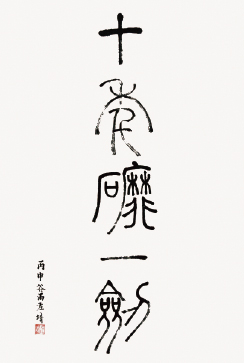 十年磨一劍
丙申谷雨